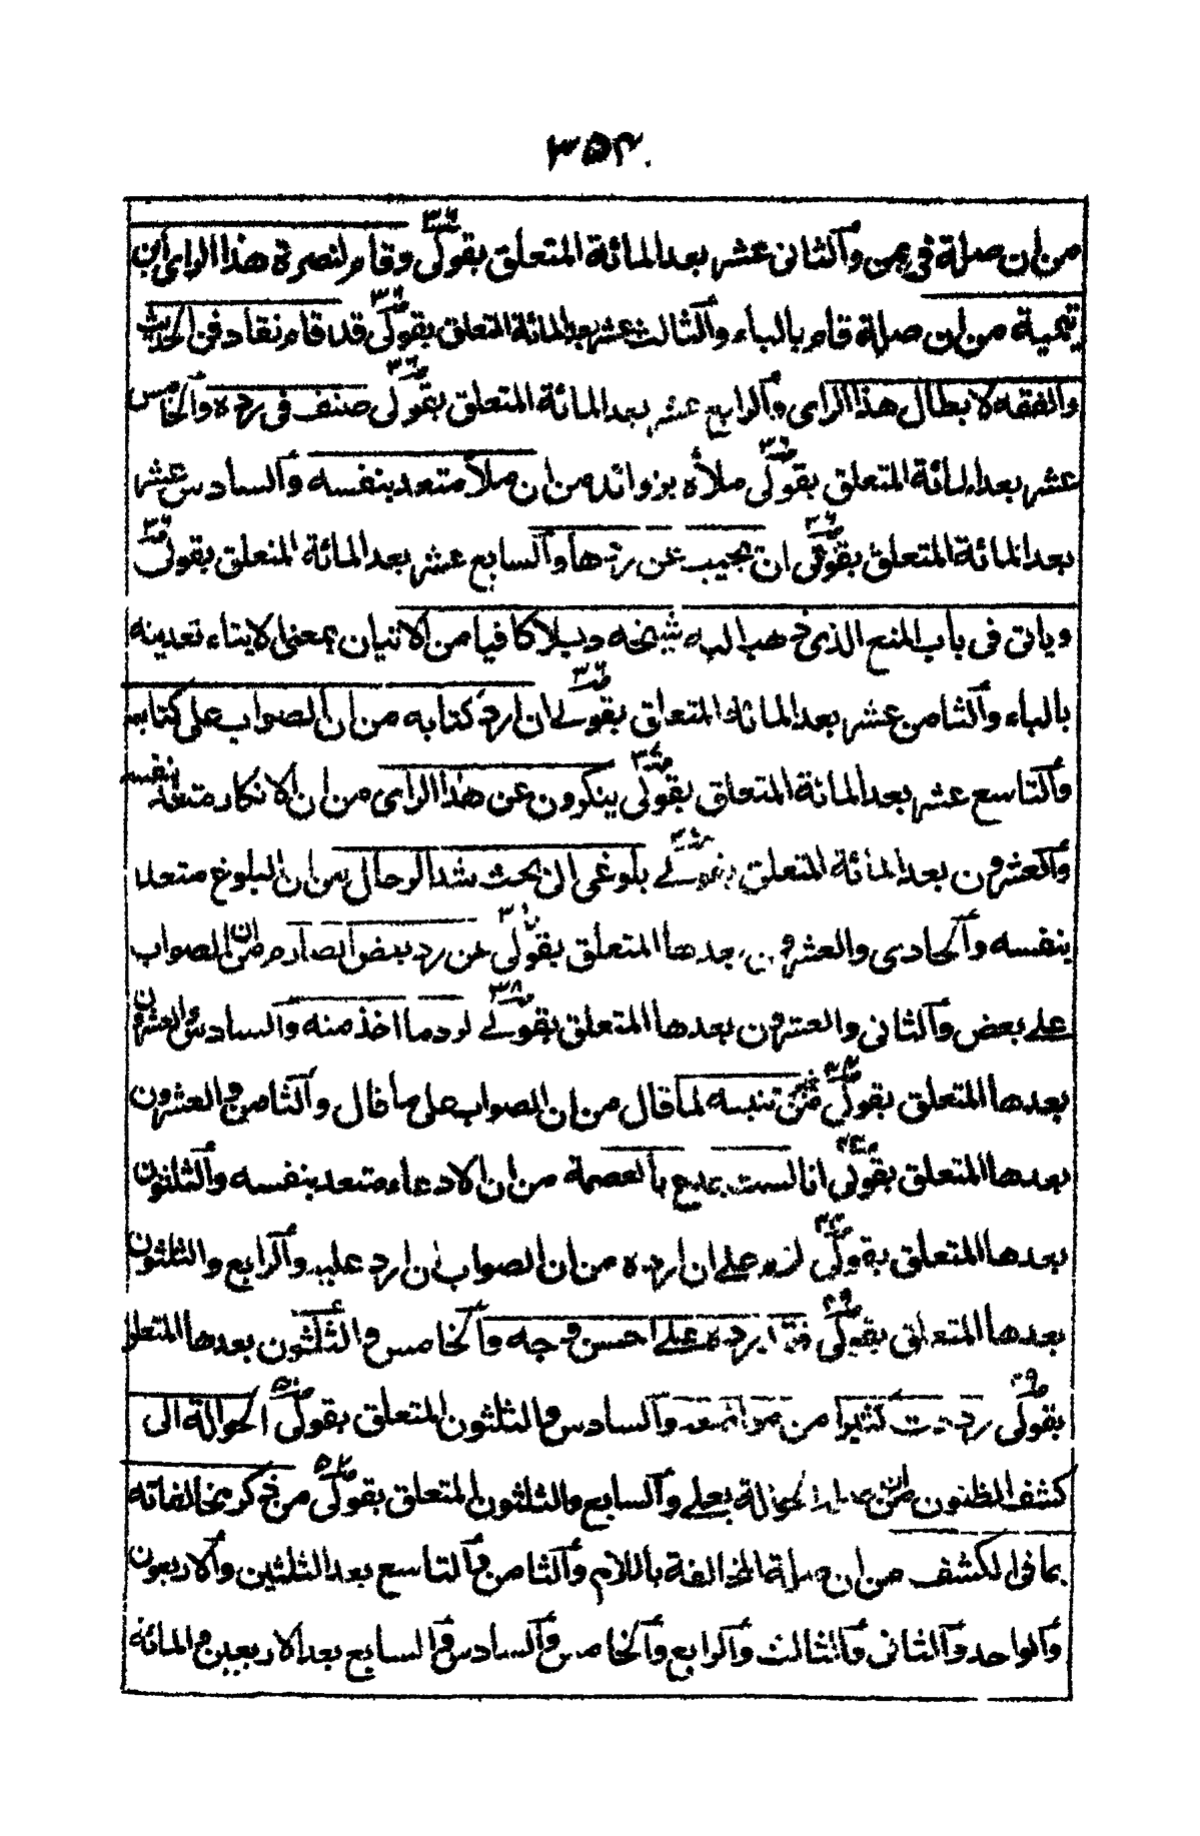 ٣٥٤
من ان صلة في عن والثانى عشر بعد المائة المتعلق بقولى ص٣٦ وقام لنصرة هذا الراى ابن
تيمية من ان صلة قام بالباء والثالث عشر بعد المائة المتعلق بقولى ص٣٦ قد قام نقاد فن الحديث
والفقه لابطال هذا الراى والرابع عشر بعد المائة المتعلق بقولى ص٣٦ صنف فى رده والخامس
عشر بعد المائة المتعلق بقولى ص٣٦ ملأه بزوائد من ان ملأ متعد بنفسه والسادس عشر
بعد المائة المتعلق بقولى ص٣٦ ان تجيب عن ردها والسابع عشر بعد المائة المتعلق بقولى ص٣٦
وياتى فى باب المنع الذى ذهب اليه شيخه دليلا كافيا من الاتيان بمعنى الايتاء تعديته
بالباء والثامن عشر بعد المائة المتعلق بقولے ص٣٦ ان ارد كتابه من ان الصواب على كتابه
والتاسع عشر بعد المائة المتعلق بقولى ينكرون عن هذا الراى من ان الانكار متعد بنفسه
والعشرون بعد المائة المتعلق بقولے بلوغى الى بحث شد الرحال من ان البلوغ متعد
بنفسه والحادى والعشرون بعدها المتعلق بقولى عن رد بعض الصارم من ان الصواب
علے بعض والثانى والعشرون بعدها المتعلق بقولے ص٣٨ لرد ما اخذ منه والسادس والعشرون
بعدها المتعلق بقولى تنبيه لما قال من ان الصواب على ما قال والثامن والعشرون
بعدها المتعلق بقولى انا لست بمدع بالعصمة من ان الادعاء متعد بنفسه والثلثون
بعدها المتعلق بقولى لزم علے ان ارده من ان الصواب ان ارد عليه والرابع والثلثون
بعدها المتعلق بقولى يرده علے احسن وجه والخامس والثلثون بعدها المتعلق
بقولى رددت كثيرا من مواضعه والسادس والثلثون المتعلق بقولى ص٥٠ الحوالة الى
كشف الظنون من ان صلة الحوالة بعلے والسابع والثلثون المتعلق بقولى من ذكر مخالفاته
بما فى الكشف من ان صلة المخالفة باللام والثامن والتاسع بعد الثلثين والاربعون
والواحد والثانى والثالث والرابع والخامس والسادس والسابع بعد الاربعين والمائة